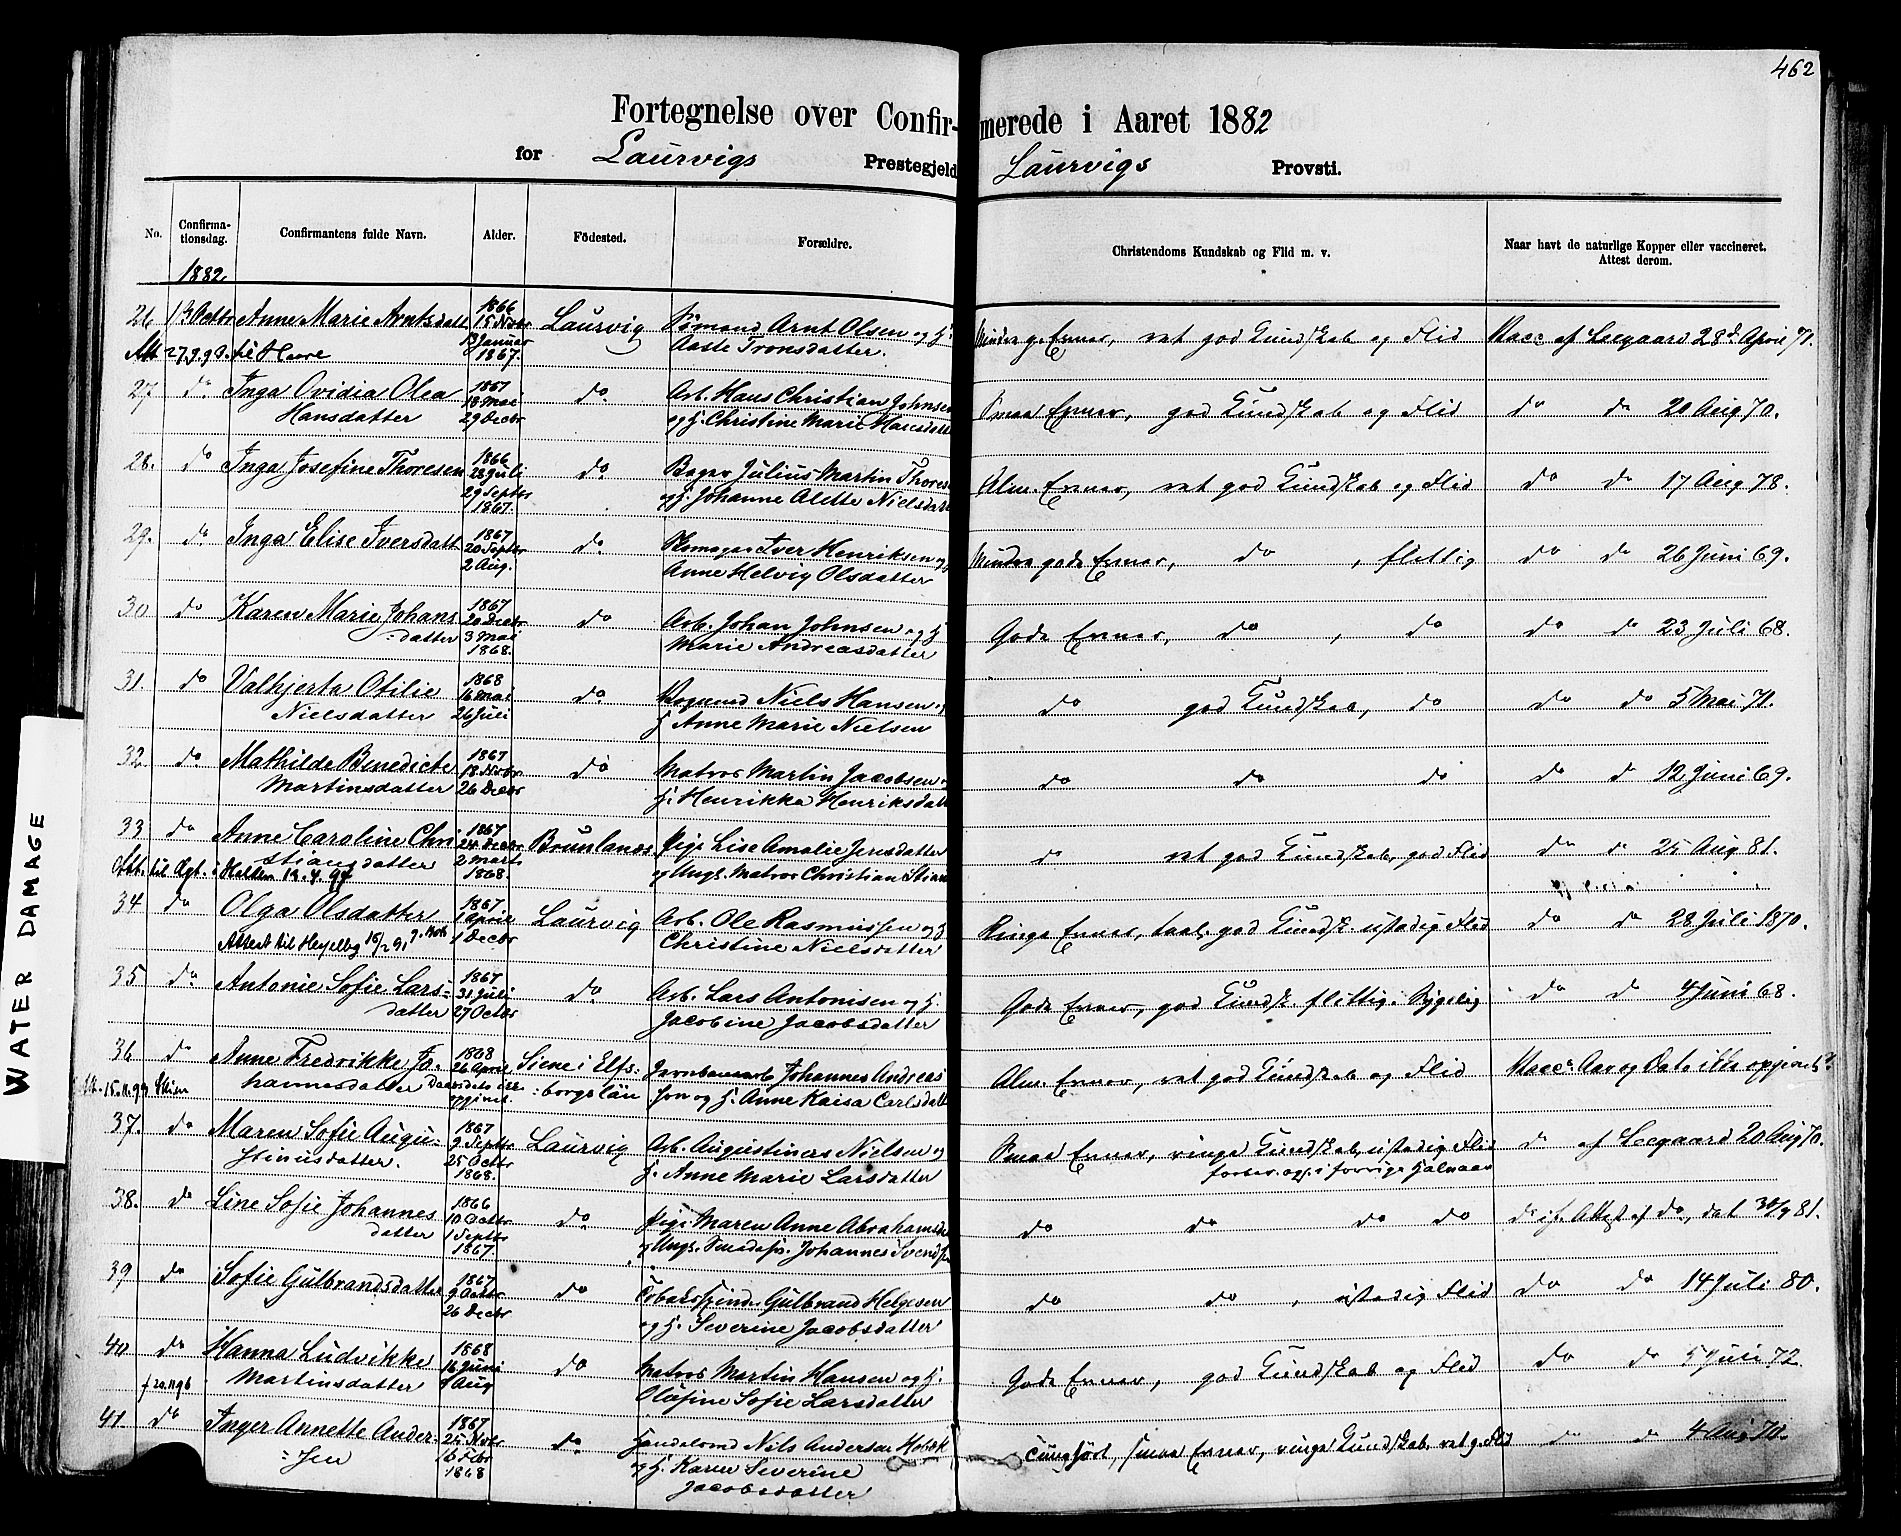 462
Fortegnelse over Confirmerede i Aaret 1882
for Laurvigs Prestegjeld Laurvigs Provsti.
No. Confirmationsdag. Confirmantens fulde Navn. Alder. Födested. Forældre. Christendoms Kundskab og Flid m. v. Naar havt de naturlige Kopper eller vaccineret. Attest derom.
1882
26 Octbr Anne Marie Arntsdatt 1866 15 Nvbr Laurvig Sömand Arnt Olsen og H. Mindre g. Evner, ret god Kundskab og Flid Vacc af Leegaard 28d April 71.
Att 27.9.98. til Havre Januar 1867. Aaste Tronsdatter.
27. do Inga Ovidia Olea 1867 18 Mai do Arb. Hans Christian Johnsen Smaa Evner, god Kundskab og Flid do do 20 Aug 70.
Hansdatter 29 Decbr og H. Christine Marie Hansdatter
28. do Inga Josefine Thoresen 1866 28 Juli do Bager Julius Martin Thoresen Alm. Evner, ret god Kundskab og Flid do do 17 Aug 78.
29 Septbr 1867. og H. Johanne Alette Nielsdatt
29. do Inga Elise Iversdatt 1867 20 Septbr do Skomager Iver Henriksen og Mindre gode Evner, do , flittig do do 26 Juni 69.
2 Aug. Anne Helvig Olsdatter
30 do Karen Marie Johans 1867 20 Decbr do Arb. Johan Johnsen og H. Gode Evner, do , do do do 23 Juli 68.
datter 3 Mai 1868. Marie Andreasdatter
31. do Valhjerta Otilie 1868 16 Mai do Vognmd Niels Hansen og do god Kundskab, do do do 5 Mai 71.
Nielsdatter 26 Juli H. Anne Marie Nielsen
32 do Mathilde Benedicte 1867 18 Nvbr do Matros Martin Jacobsen og do do do do do 12 Juni 69.
Martinsdatter 26 Decbr H. Henrikka Henriksdatt
33 do Anne Caroline Chri- 1867 24 Decbr Brunlanes Pige Lise Amalie Jensdatter do ret god Kundskab, god Flid do do 25 Aug 81.
Att. til Ægt. i Halden 13.4.97 stiansdatter 2 Marts 1868. og Ungk. Matros Christian
34 do Olga Olsdatter 1867 1 April Laurvig Arb. Ole Rasmussen og H. Ringe Evner, taal. god Kundsk ustadig Flid do do 28 Juli 1870.
Attest til 16/2 91 1 Decbr Christine Nielsdatter
35 do Antonie Sofie Lars- 1867 31 Juli do Arb. Lars Antonisen og H. Gode Evner, god Kundsk. flittig. Sygelig do do 4 Juni 68.
datter 27 Octbr Jacobine Jacobsdatter
36 do Anne Fredrikke Jo- 1868 26 April Siene i Elfs- Johannes Andreas Alm. Evner, ret god Kundskab og Flid Vacc Aar og Dato ikke opgivet
Att. 15.11.99 Skien hannesdatter opgivet -borgslän Son og H. Anne Kaisa Carlsdatt
37. do Maren Sofie Augu- 1867 9 Septbr Laurvig Arb. Augustinus Nielsen og Smaa Evner, ringe Kundskab, ustadig Flid do af Leegaard 20 Aug 70.
stinusdatter. 25 Octbr 1868. H. Anne Marie Larsdatter i forrige Halvaar
38. do Line Sofie Johannes 1866 10 Octbr do Pige Maren Anne Abrahamsdr do do do do do if. Attest af do, dat 30/9 81.
datter 1 Septbr 1867. og Ungk. Johannes Svendsen
39 do Sofie Gulbrandsdatter 1867 9 Octbr do Tobaksspind. Gulbrand Helgesen do do , ustadig Flid do do 14 Juli 80.
26 Decbr og H. Severine Jacobsdatter
40 do Hanna Ludvikke 1868 16 Juni do Matros Martin Hansen og H. Gode Evner, god Kundskab og Flid do do 5 Juli 72.
Martinsdatter Aug Olufine Sofie Larsdatter
41. do Inger Annette Ander- 1867 25 Nvbr do Handelsmd Nils Andersen Smaa Evner, ringe Kundskab, ret g. Flid do do 4 Aug 70.
-sen 16 Febr 1868 og H. Karen Severine
Jacobsdatter
WATER DAMAGE